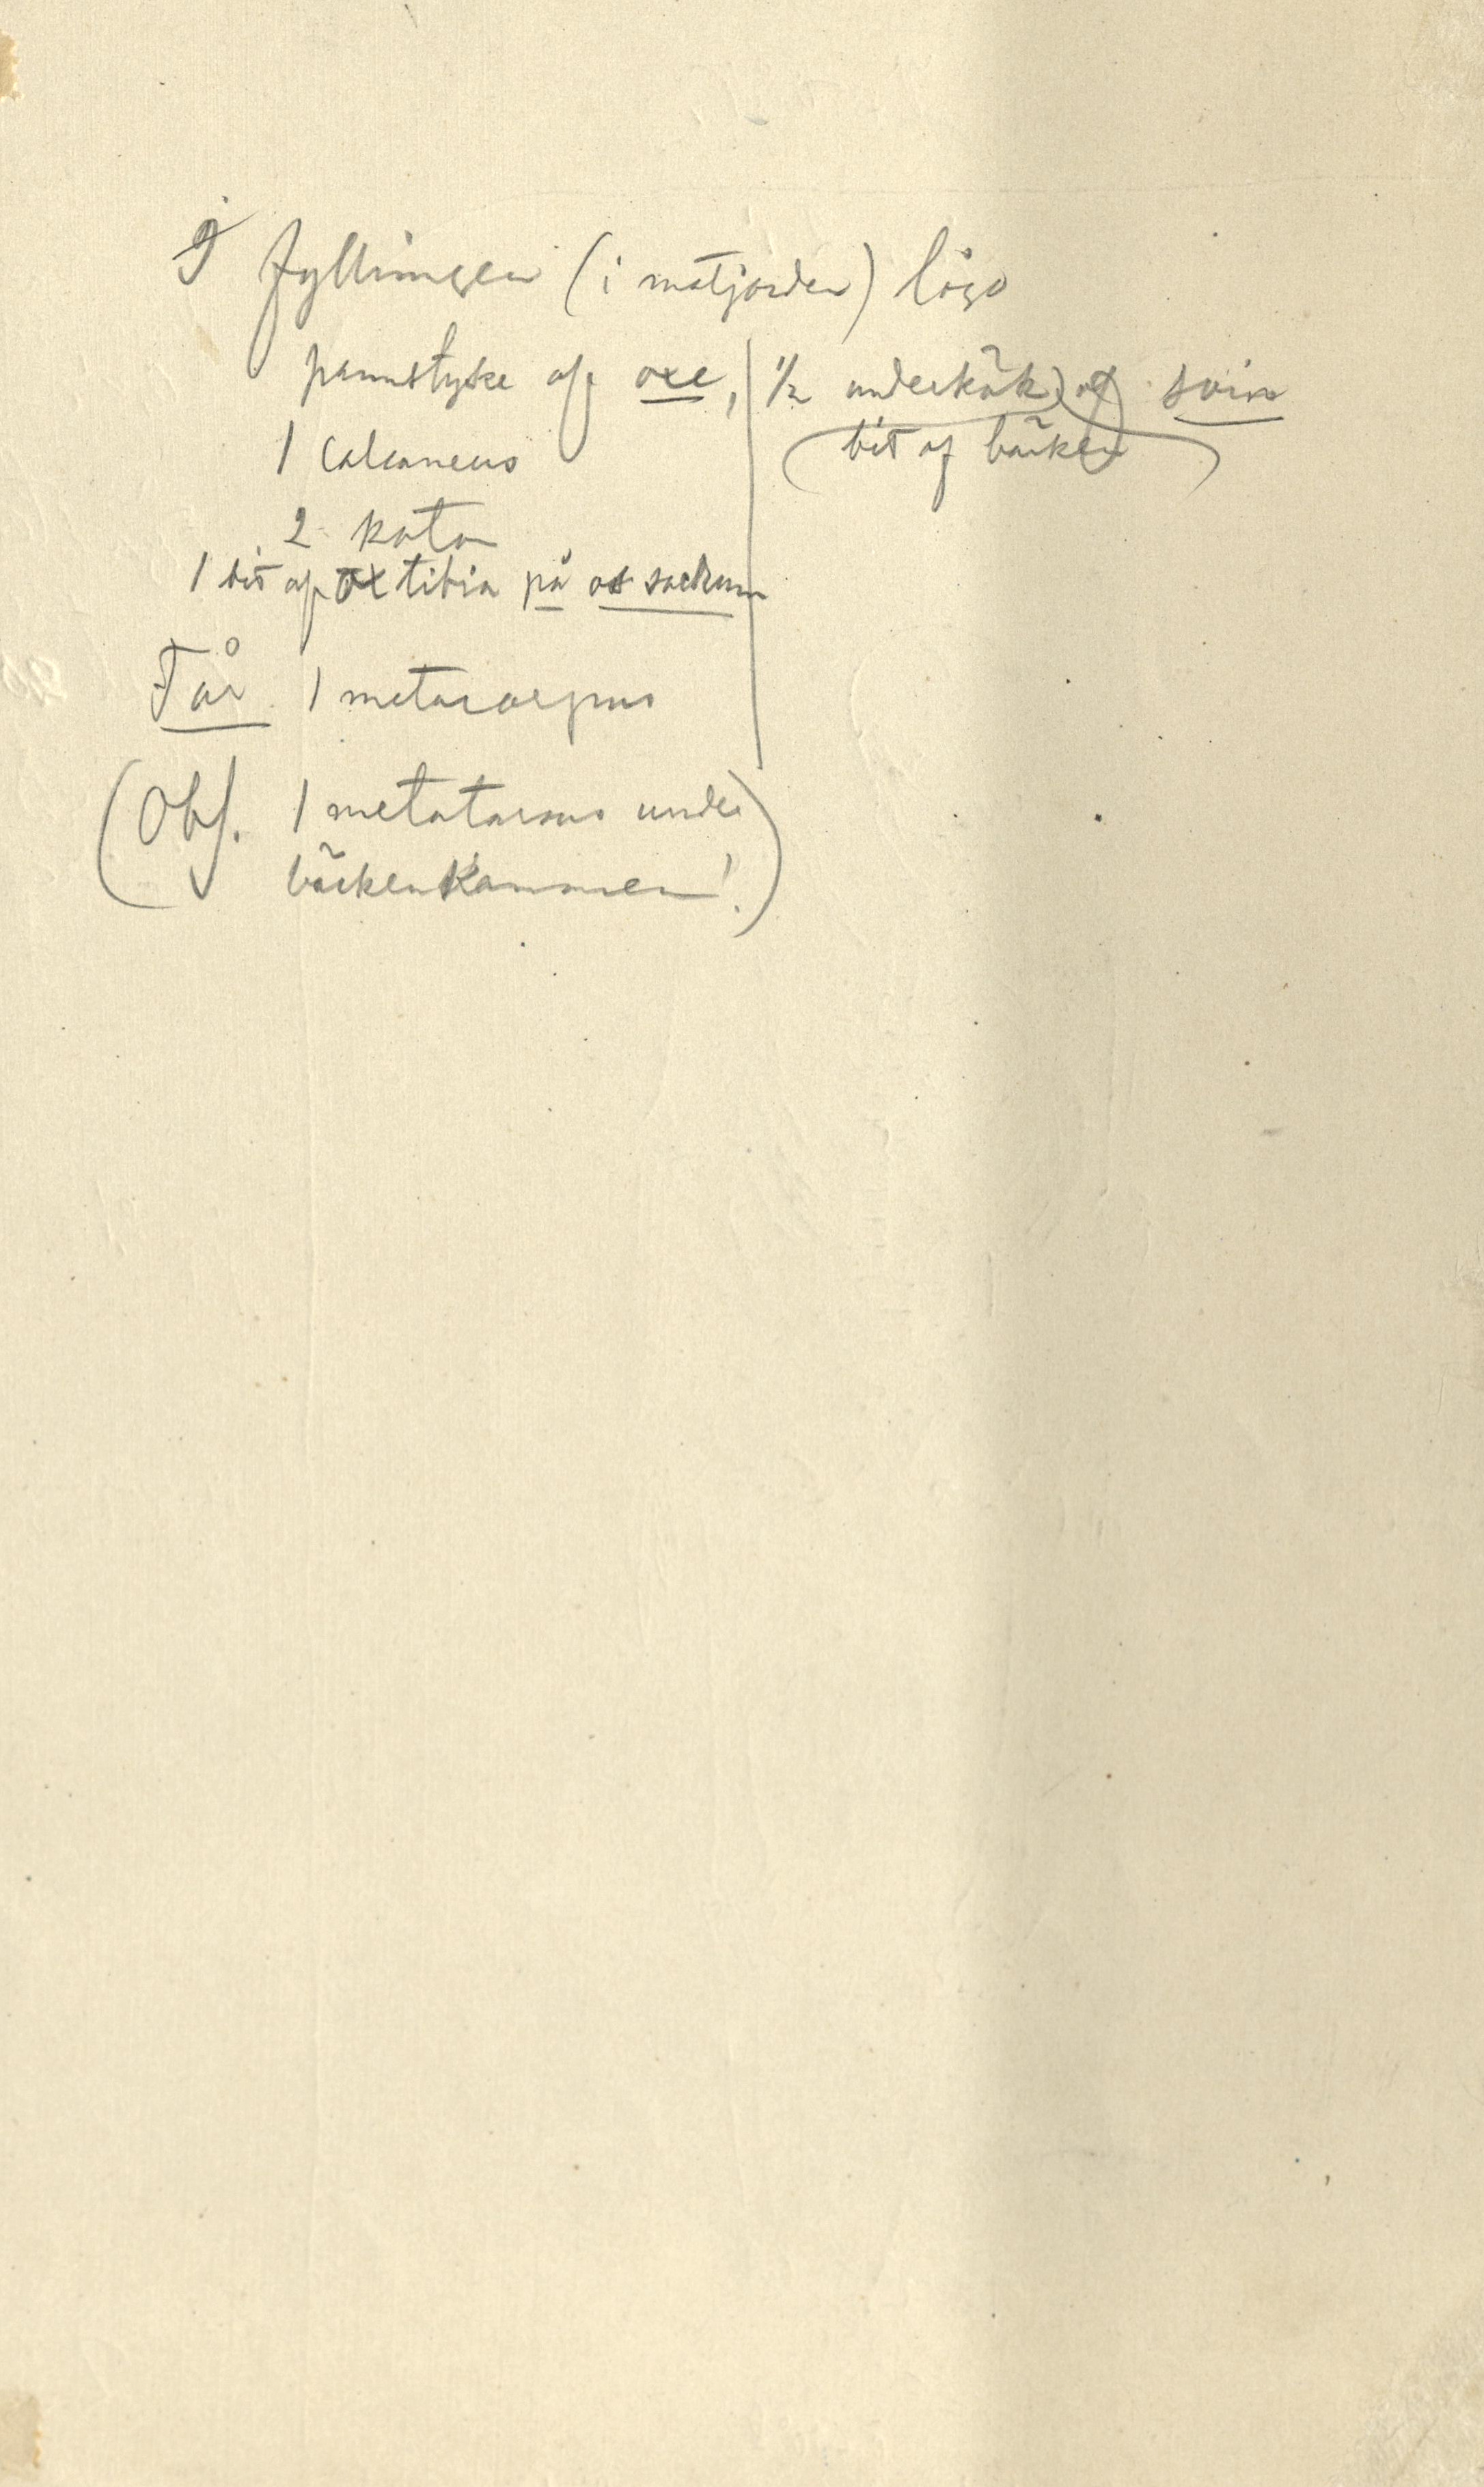 I fyllningen (i matjorden) lågo
pannstycke af oxe, 1/2 underkäk af svin
bit af bäcken
1 calcaneus
2 kotor
1 bit af ox tibia på os sacrum
Får 1 metacarpus
(Obs. 1 metatarsus under
bäckenkammen!)